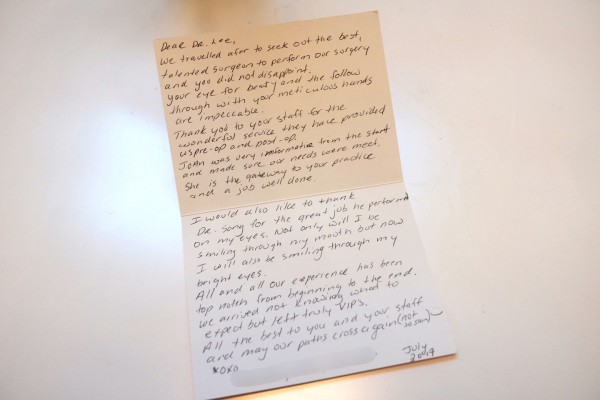 Dear Dr. Lee,
We travelled afar to seek out the best,
talented surgeon to perform our surgery
and you did not disappoint.
Your eye for beaty and the follow
through with your meticulous hands
are impeccable.
Thank you to your staff for the
wonderful service they have provided
us pre-op and post-op.
JoAn was very informative from the start
and made sure our needs were meet.
She is the gateway to your practice
and a job well done.
I would also like to thank
Dr. Song for the great job he performed
on my eyes. Not only will I be
smiling through my mouth but now
I will also be smiling through my
bright eyes.
All and all our experience has been
top notch from beginning to the end.
We arrived not knowing what to
expect but left truly VIPs.
All the best to you and your staff
and may our paths cross again (not
so soon)
xoxo
July
2017